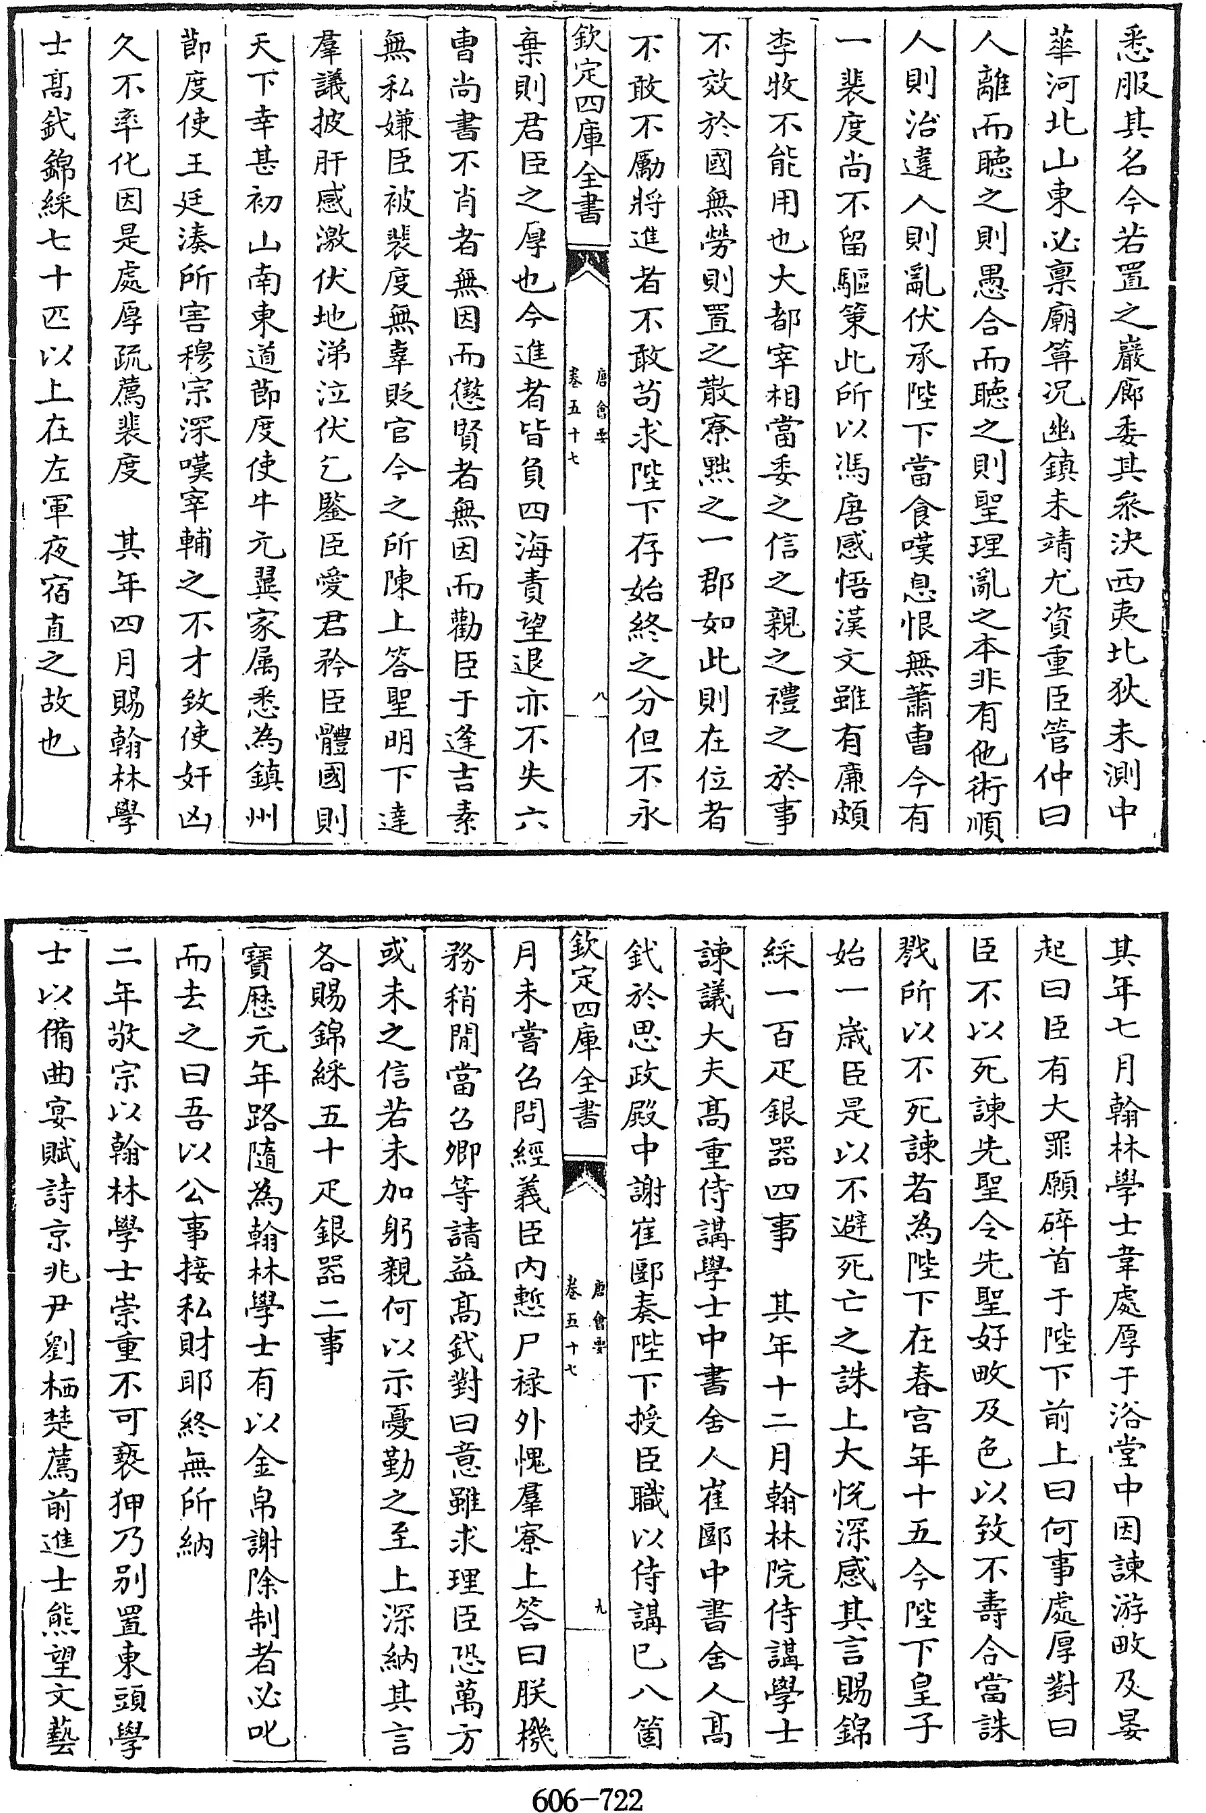 悉服其名今若置之巖廊委其叅決西夷北狄未測中
華河北山東必禀廟算况幽鎮未靖尤資重臣管仲曰
人離而聽之則愚合而聽之則聖理亂之本非有他術順
人則治違人則亂伏承陛下當食嘆息恨無蕭曹今有
一裴度尚不留驅策此所以馮唐感悟漢文雖有廉頗
李牧不能用也大都宰相當委之信之親之禮之於事
不效於國無勞則置之散寮黜之一郡如此則在位者
不敢不厲將進者不敢苟求陛下存始終之分但不永
欽定四庫全書
唐會要
卷五十七
八
棄則君臣之厚也今進者皆負四海責望退亦不失六
曹尚書不肖者無因而懲賢者無因而勸臣于逢吉素
無私嫌臣被裴度無辜貶官今之所陳上答聖明下達
羣議披肝感激伏地涕泣伏乞鑒臣愛君矜臣體國則
天下幸甚初山南東道節度使牛元翼家属悉為鎮州
節度使王廷湊所害穆宗深嘆宰輔之不才致使奸凶
久不率化因是處厚疏薦裴度 其年四月賜翰林學
士高釴錦綵七十匹以上在左軍夜宿直之故也
其年七月翰林學士韋處厚于浴堂中因諫游畋及晏
起曰臣有大罪願碎首于陛下前上曰何事處厚對曰
臣不以死諫先聖令先聖好畋及色以致不壽合當誅
戮所以不死諫者為陛下在春宫年十五今陛下皇子
始一歲臣是以不避死亡之誅上大悅深感其言賜錦
綵一百疋銀器四事 其年十二月翰林院侍講學士
諫議大夫高重侍講學士中書舍人崔郾中書舍人高
釴於思政殿中謝崔郾奏陛下授臣職以侍講已八箇
欽定四庫全書
唐會要
卷五十七
九
月未嘗召問經義臣内慙尸禄外愧羣寮上答曰朕機
務稍閒當召卿等請益高釴對曰意雖求理臣恐萬方
或未之信若未加躬親何以示憂勤之至上深納其言
各賜錦綵五十疋銀器二事
寶歷元年路隨為翰林學士有以金帛謝除制者必叱
而去之曰吾以公事接私財耶終無所納
二年敬宗以翰林學士崇重不可褻狎乃别置東頭學
士以備曲宴賦詩京兆尹劉栖楚薦前進士熊望文藝
606-722